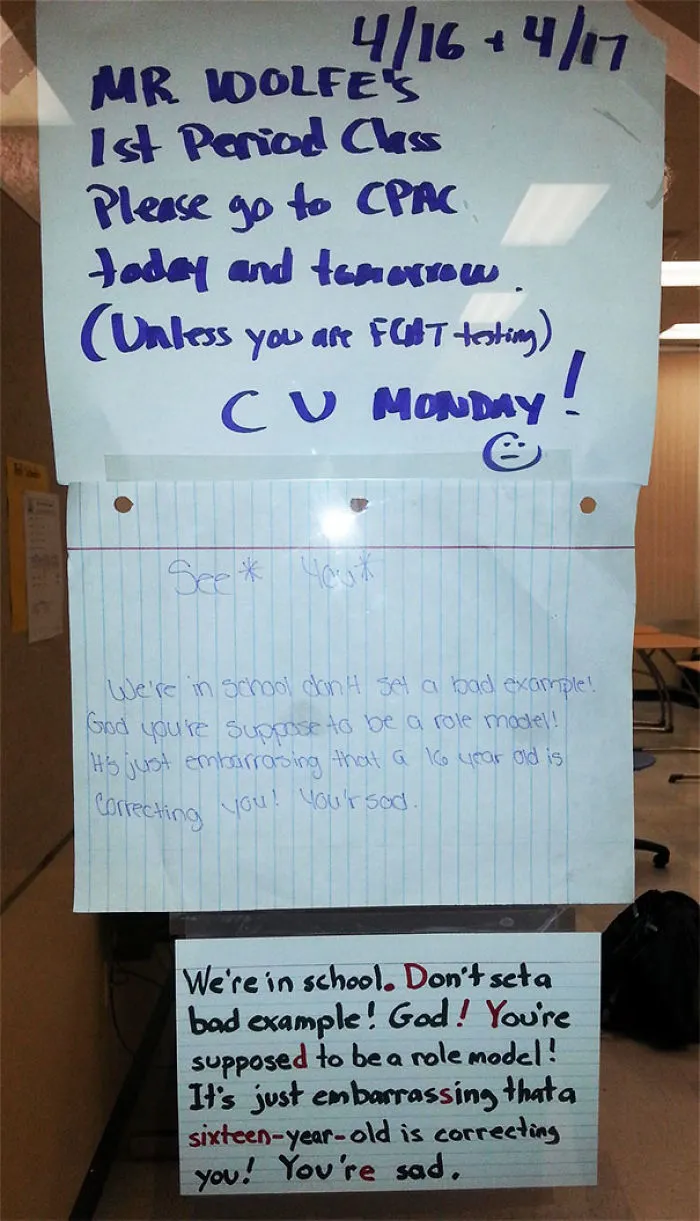 4/16 + 4/17
MR WOLFE's
1st Period Class
Please go to CPAC
today and tomorrow.
(Unless you are FCAT testing)
C U MONDAY!
See* You*
We're in school don't set a bad example!
God you're suppose to be a role model!
It's just embarrasing that a 16 year old is
correcting you! You'r sad.
We're in school. Don't set a
bad example! God! You're
supposed to be a role model!
It's just embarrassing that a
sixteen-year-old is correcting
you! You're sad.